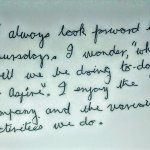 I always look forward t
Thursdays. I wonder, "wh
will we be doing to-d
Aspire". I enjoy the
company and the various
activities we do.